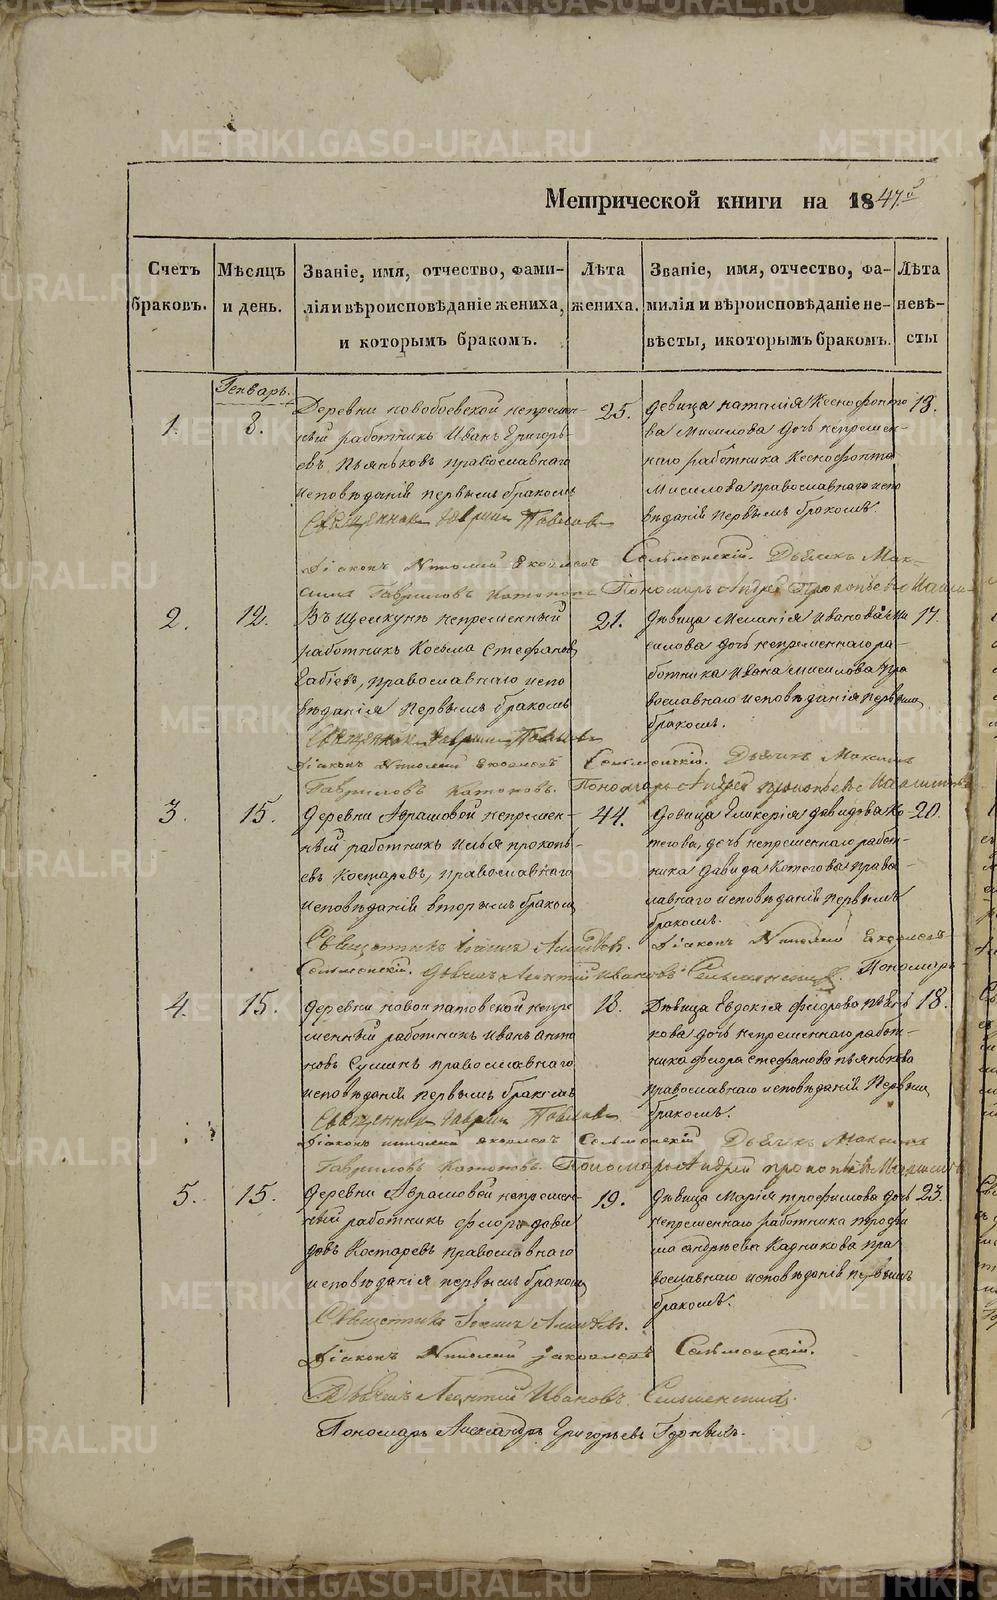 METRIKI.GASO-URAL.RU
Метрической книги на 1847й
Счетъ браковъ.
Мѣсяцъ и день.
Званіе, имя, отчество, фами-
лія и вѣроисповѣданіе жениха,
и которымъ бракомъ.
Лѣта жениха.
Званіе, имя, отчество, фа-
милія и вѣроисповѣданіе не-
вѣсты, и которымъ бракомъ.
Лѣта невѣ-
сты
Генварь.
1.
8.
Деревни новобоевской непремен-
ный работникъ Иванъ Григорь-
евъ Пьяньковъ православнаго
исповѣданій первымъ бракомъ
25.
девица наталія Ксенофонто
ва Мисилова дочь непремен-
наго работника Ксенофонта
Мисилова православнаго испо
вѣданій первымъ бракомъ.
18.
Священникъ Павлов
Діаконъ Николай Сельменскій. Дьячекъ Мак-
симъ Гавриловъ Пономарь Андрей Прокопьевъ
2.
12.
Въ непременный
работникъ Косьма Стефановъ
православнаго испо
вѣданія первымъ бракомъ
21.
Дѣвица Меланія Иванова Ми
силова дочь непременнаго ра-
ботника Ивана Мисилова пра
вославнаго исповѣданія первымъ
бракомъ.
17.
Священникъ Павлов
Діаконъ Николай Сельменскій. Дьячекъ Максимъ
Гавриловъ Пономарь Андрей Прокопьевъ
3.
15.
деревни Абрамовой непремен-
ный работникъ Илья прокопь-
евъ Костаревъ, православнаго
исповѣданій вторымъ бракомъ
44.
Девица Гликерія давидова Ко
тегова, дочь непременнаго работ-
ника давида Котегова право
славнаго исповѣданій первымъ
бракомъ.
20.
Священникъ Іоаннъ Діаконъ Николай
Сельменскій. Дьячекъ Леонтій Ивановъ Пономарь
4.
15.
деревни непре
менный работникъ Иванъ анто
новъ православнаго
исповѣданій первымъ бракомъ
18.
Дѣвица Евдокія флорова пьянь
кова дочь непременнаго работ-
ника флора стефанова пьянькова
православнаго исповѣданій первымъ
бракомъ.
18.
Священникъ Павлов
Діаконъ николай Сельменскій Дьячекъ Максимъ
Гавриловъ Пономарь Андрей прокопьевъ
5.
15.
деревни Абрамовой непремен-
ный работникъ флоръ дави
довъ Костаревъ православнаго
исповѣданія первымъ бракомъ
19.
Дѣвица Марія трофимова дочь
непременнаго работника трофи
ма андреева Кадникова пра
вославнаго исповѣданій первымъ
бракомъ.
23.
Священникъ Іоаннъ
Діаконъ Николай Сельменскій.
Дьячекъ Леонтій Ивановъ Сельменскій.
Пономарь Александръ Григорьевъ